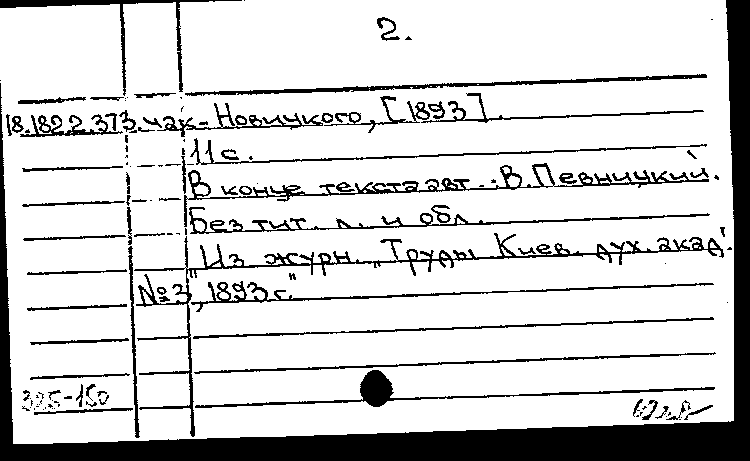 2.
18.182 2.373. чак-Новицкого, [1893].
11 с.
В конце текста авт.: В. Певницкий.
Без тит. л. и обл.
"Из журн. „Труды Киев. дух. акад."
№3, 1893 г."
325-150